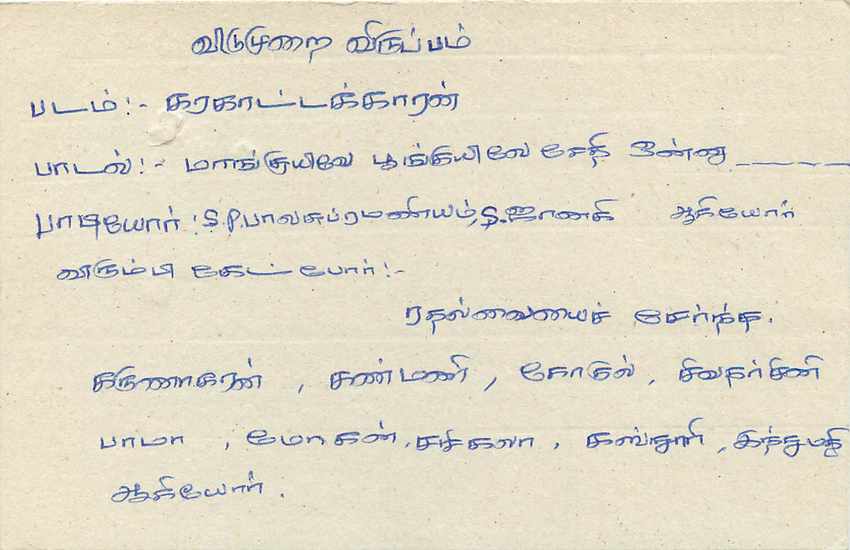 விடுமுறை விருப்பம்
படம்:- கரகாட்டக்காரன்
பாடல்:- மாங்குயிலே பூங்குயிலே சேதி ஒன்னு _ _ _ _
பாடியோர்: S.P.பாலசுப்ரமணியம், S.ஜானகி ஆகியோர்
விரும்பி கேட்போர்:-
ரதல்வையைச் சேர்ந்த.
கருணாகரன் , சண்மணி , கோகுல் , சிவதர்சினி
பாமா , மோகன், சசிகலா , கஸ்தூரி , இந்துமதி
ஆகியோர் .